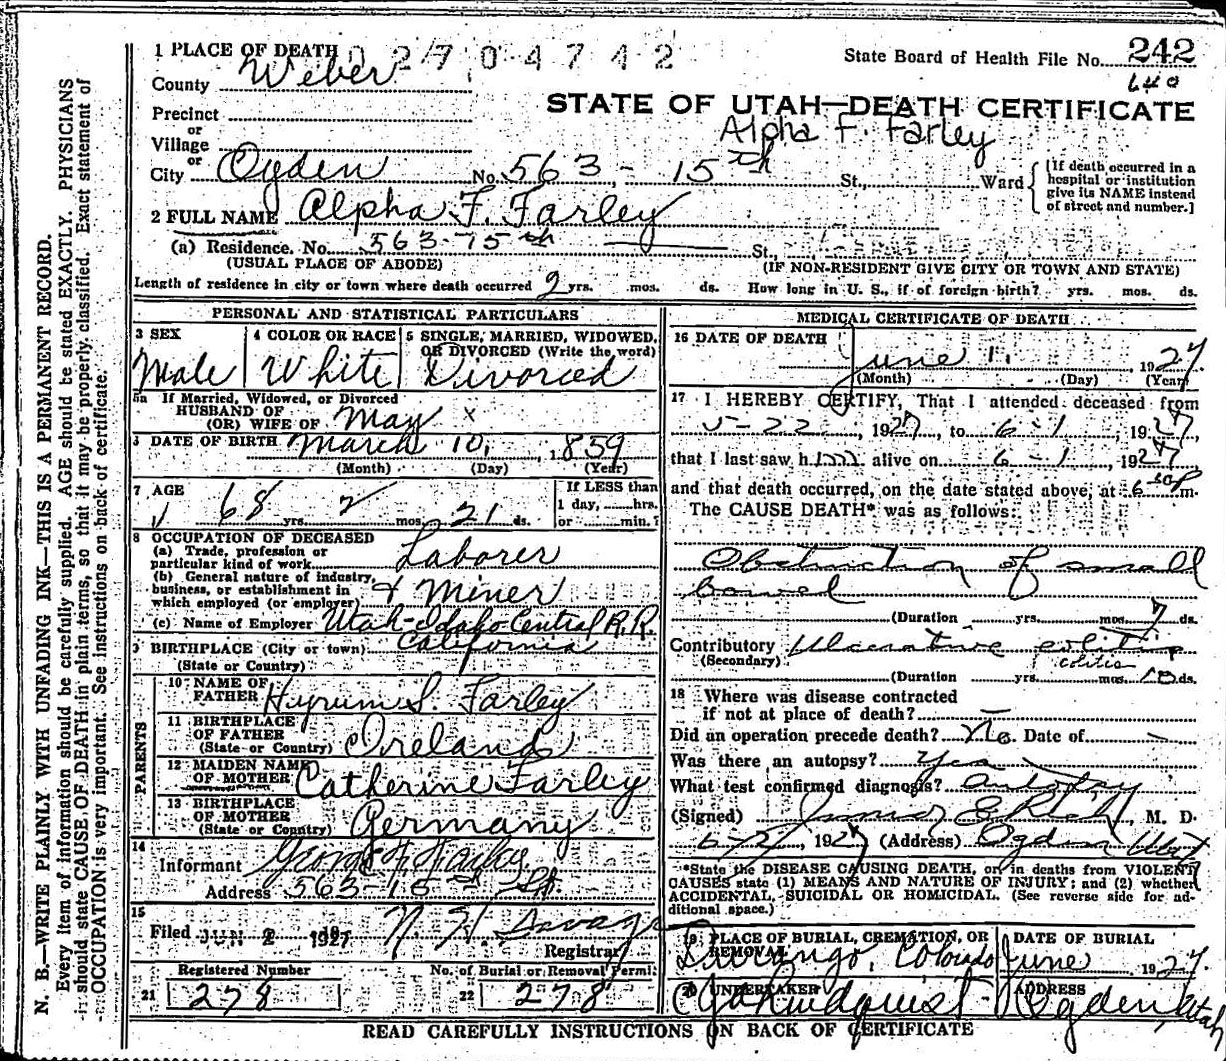 1 PLACE OF DEATH 0 2 7 0 4 7 4 2
State Board of Health File No. 242
640
County Weber
STATE OF UTAH—DEATH CERTIFICATE
Precinct
or
Alpha F. Farley
Village
or
City Ogden No. 563 - 15th St., Ward
[If death occurred in a hospital or institution give its NAME instead of street and number.]
2 FULL NAME Alpha F. Farley
(a) Residence. No. 563-15th St.,
(USUAL PLACE OF ABODE) (IF NON-RESIDENT GIVE CITY OR TOWN AND STATE)
Length of residence in city or town where death occurred 9 yrs. mos. ds. How long in U. S., if of foreign birth? yrs. mos. ds.
PERSONAL AND STATISTICAL PARTICULARS
3 SEX
Male
4 COLOR OR RACE
White
5 SINGLE, MARRIED, WIDOWED,
OR DIVORCED (Write the word)
Divorced
5a If Married, Widowed, or Divorced
HUSBAND OF
(OR) WIFE OF May x
6 DATE OF BIRTH March 10, 1859
(Month) (Day) (Year)
7 AGE
68 yrs. 2 mos. 21 ds.
If LESS than
1 day, hrs.
or min.?
8 OCCUPATION OF DECEASED
(a) Trade, profession or
particular kind of work Laborer
(b) General nature of industry,
business, or establishment in
which employed (or employer) & Miner
(c) Name of Employer Utah-Idaho Central R.R.
9 BIRTHPLACE (City or town) California
(State or Country)
PARENTS
10 NAME OF
FATHER Hyrum S. Farley
11 BIRTHPLACE
OF FATHER
(State or Country) Ireland
12 MAIDEN NAME
OF MOTHER Catherine Farley
13 BIRTHPLACE
OF MOTHER
(State or Country) Germany
14
Informant George F. Farley
Address 563-15th St.
15
Filed JUN 2 1927
Registrar
Registered Number
21 278
No. of Burial or Removal Permit
22 278
MEDICAL CERTIFICATE OF DEATH
16 DATE OF DEATH
June 1. 1927
(Month) (Day) (Year)
17 I HEREBY CERTIFY, That I attended deceased from
5-22, 1927, to 6-1, 1927
that I last saw him alive on 6-1, 1927
and that death occurred, on the date stated above, at 6 30 P m.
The CAUSE DEATH* was as follows:
Obstruction of small
bowel
(Duration yrs. mos. 7 ds.
Contributory Ulcerative colitis
(Secondary) colitis
(Duration yrs. mos. 10 ds.
18 Where was disease contracted
if not at place of death? —
Did an operation precede death? No. Date of —
Was there an autopsy? Yes
What test confirmed diagnosis? autopsy
(Signed) M. D.
6-2, 1927 (Address) Ogden Utah
*State the DISEASE CAUSING DEATH, or in deaths from VIOLENT
CAUSES state (1) MEANS AND NATURE OF INJURY; and (2) whether
ACCIDENTAL, SUICIDAL OR HOMICIDAL. (See reverse side for ad-
ditional space.)
19 PLACE OF BURIAL, CREMATION, OR
REMOVAL
Durango, Colorado
DATE OF BURIAL
June 1927.
20 UNDERTAKER
ADDRESS
Ogden, Utah
READ CAREFULLY INSTRUCTIONS ON BACK OF CERTIFICATE
N. B.—WRITE PLAINLY WITH UNFADING INK—THIS IS A PERMANENT RECORD.
Every item of information should be carefully supplied. AGE should be stated EXACTLY. PHYSICIANS
should state CAUSE OF DEATH in plain terms, so that it may be properly classified. Exact statement of
OCCUPATION is very important. See instructions on back of certificate.